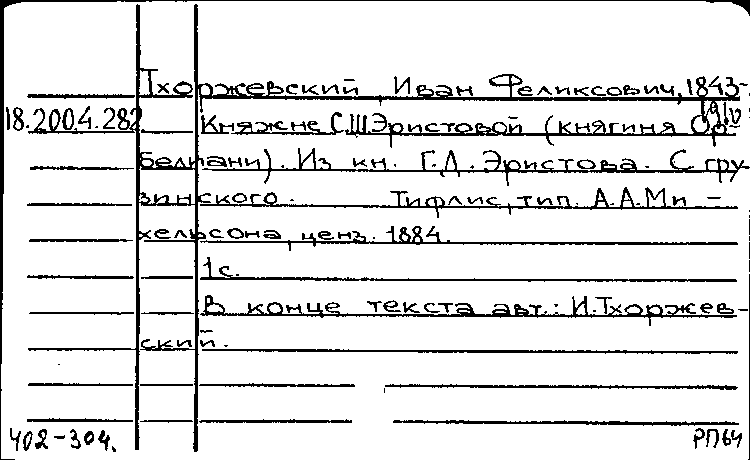 Тхоржевский, Иван Феликсович, 1843-
1910
18.2004.282 Княжне С.Ш.Эристовой (княгиня Ор-
белиани). Из кн. Г.Д. Эристова. С гру
зинского. Тифлис, тип. А.А.Ми-
хельсона, ценз. 1884.
1с.
В конце текста авт.: И.Тхоржев-
ский.
402-304. РП64